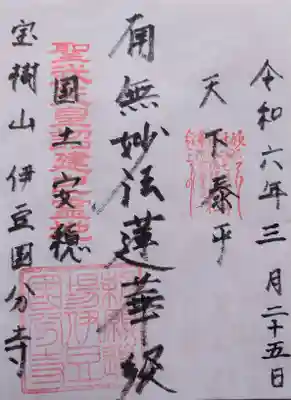 令和六年三月二十五日
天下泰平
南無妙法蓮華経
国土安穏
宝樹山 伊豆国分寺
場伊豆
國分寺